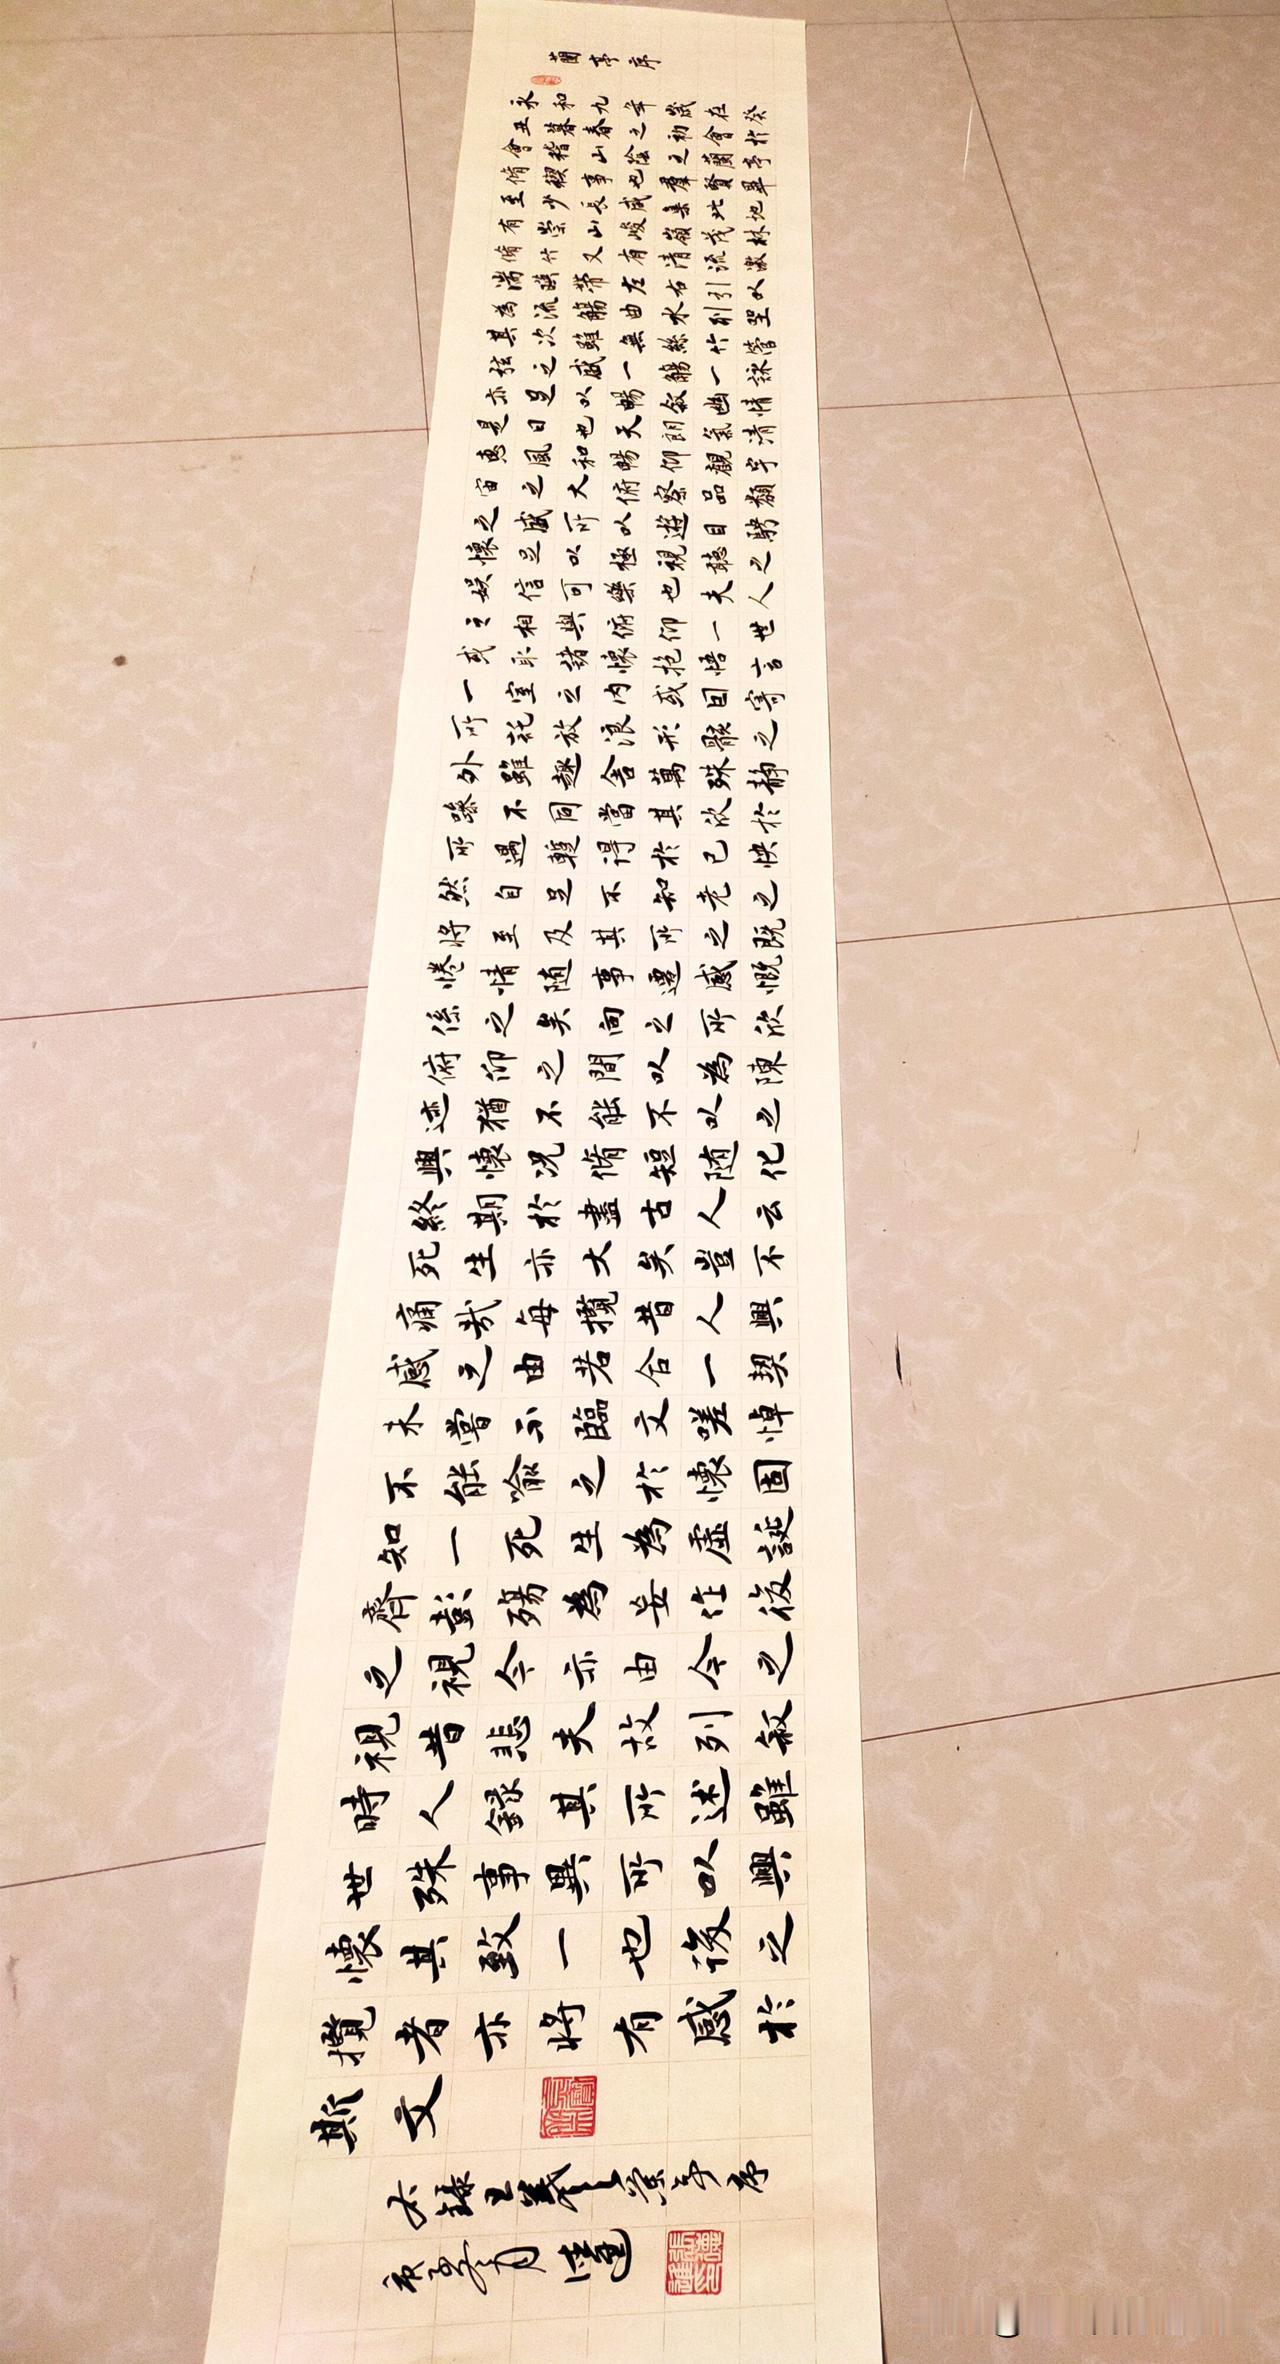 蘭亭序
永和九年歲在癸
丑暮春之初會於
會稽山陰之蘭亭
脩稧事也羣賢畢
至少長咸集此地
有崇山峻嶺茂林
脩竹又有清流激
湍暎帶左右引以
為流觴曲水列坐
其次雖無絲竹管
弦之盛一觴一詠
亦足以暢敘幽情
是日也天朗氣清
惠風和暢仰觀宇
宙之大俯察品類
之盛所以遊目騁
懷足以極視聽之
娛信可樂也夫人
之相與俯仰一世
或取諸懷抱悟言
一室之內或因寄
所託放浪形骸之
外雖趣舍萬殊靜
躁不同當其欣於
所遇蹔得於己快
然自足不知老之
將至及其所之既
惓情隨事遷感慨
係之矣向之所欣
俯仰之間以為陳
迹猶不能不以之
興懷況脩短隨化
終期於盡古人云
死生亦大矣豈不
痛哉每攬昔人興
感之由若合一契
未嘗不臨文嗟悼
不能喻之於懷固
知一死生為虛誕
齊彭殤為妄作後
之視今亦由今之
視昔悲夫故列敘
時人錄其所述雖
世殊事異所以興
懷其致一也後之
攬者亦將有感於
斯文
右錄王羲之蘭亭序
庚子冬月